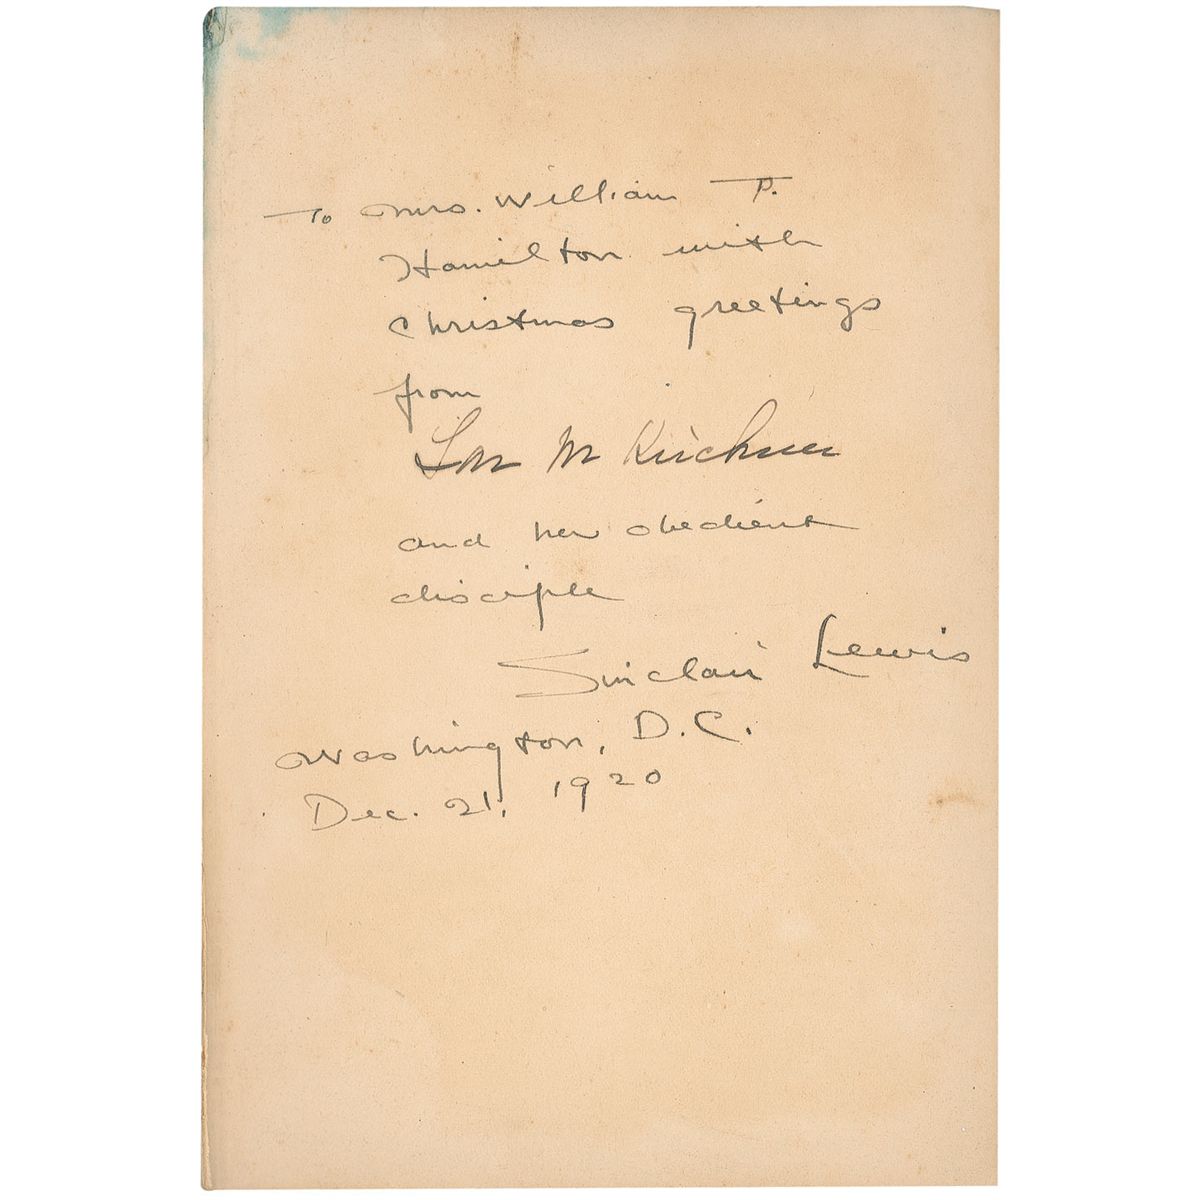 To Mrs. William P.
Hamilton with
Christmas greetings
from
M Kirchner
and her obedient
disciple
Sinclair Lewis
Washington, D.C.
Dec. 21, 1920